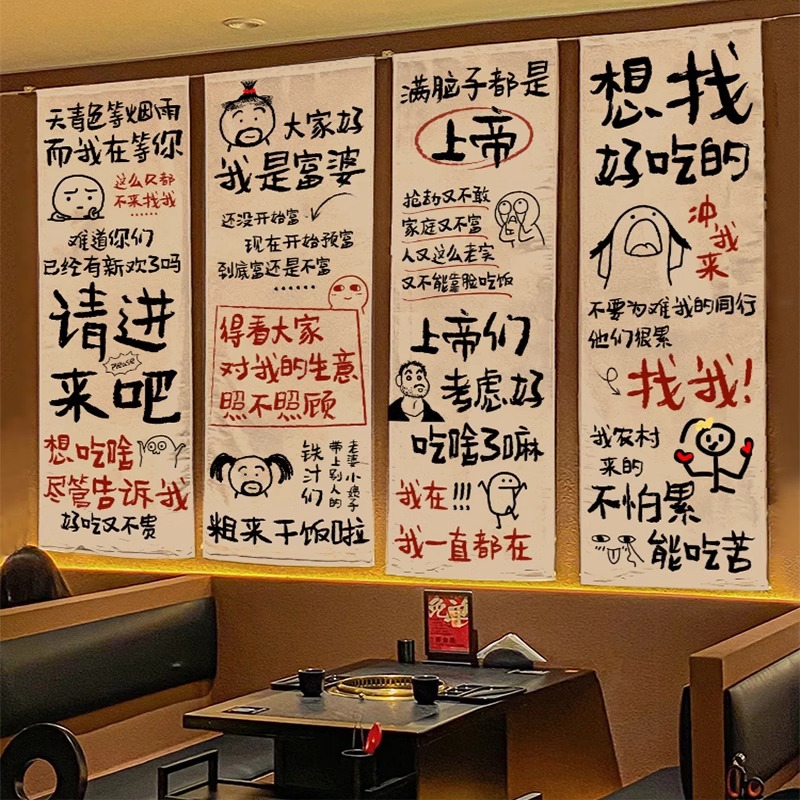 天青色等烟雨
而我在等你
这么久都
不来找我
······
难道你们
已经有新欢了吗
请进
please
来吧
想吃啥
尽管告诉我
好吃又不贵
大家好
我是富婆
还没开始富
现在开始预富
到底富还是不富
······
得看大家
对我的生意
照不照顾
铁汁们
带上别人的
老婆小孩子
粗来干饭啦
满脑子都是
上帝
抢劫又不敢
家庭又不富
人又这么老实
又不能靠脸吃饭
上帝们
考虑好
吃啥了嘛
我在!!!
我一直都在
想找
好吃的
冲我来
不要为难我的同行
他们很累
找我!
我农村
来的
不怕累
能吃苦
免单